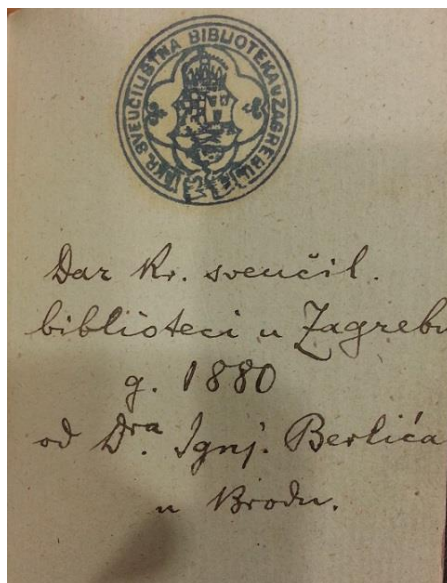 KR. SVEUČILIŠTNA BIBLIOTEKA U ZAGREBU
Dar kr. sveučil.
biblioteci u Zagrebu
g. 1880
od Dra. Ignj. Berlića
u Brodu.